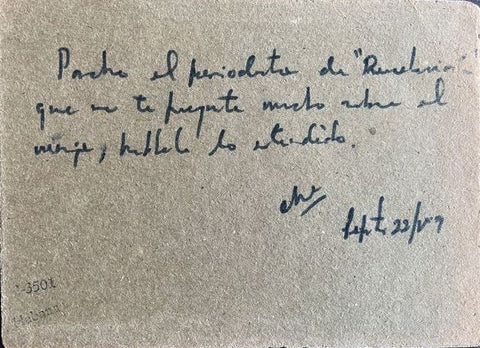 el periodista de "Revolución"
que no te pregunte mucho sobre el
viaje, háblale lo
Che
Sept. 22/59
-350
Habana